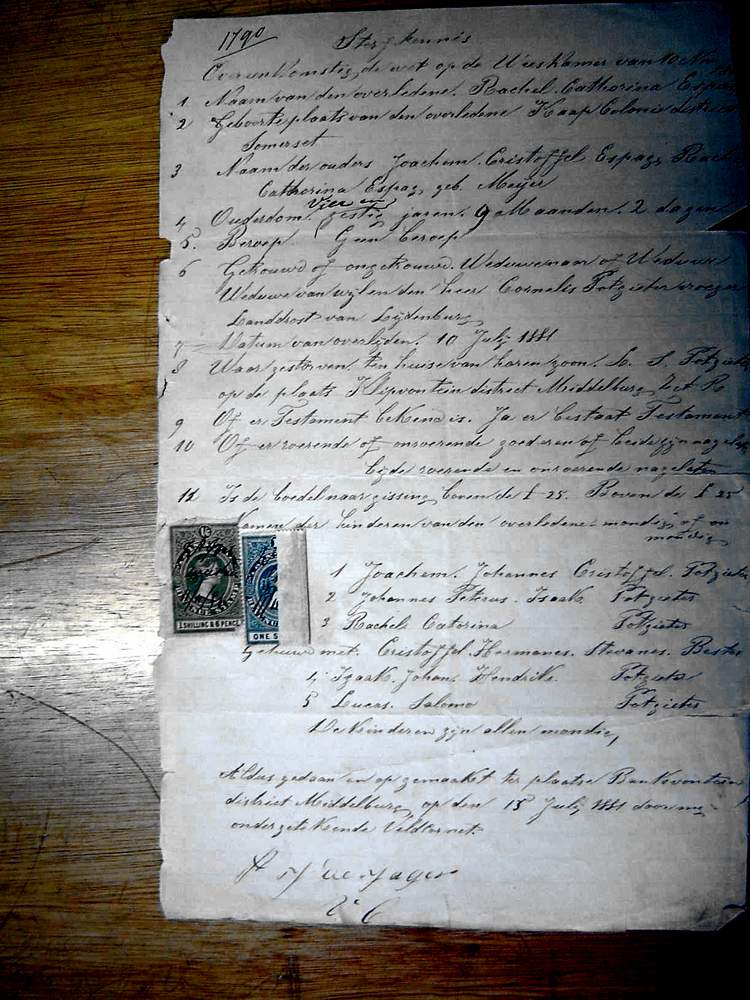 1790
Sterfkennis
Overeenkomstig de wet op de Weeskamer van
1 Naam van den overledene. Rachel. Catharina Espag
2 Geboorteplaats van den overledene Kaap Colonie district
Somerset
3 Naam der ouders Joachem. Cristoffel Espag, Rachel
Catharina Espag geb. Meijer
4 Ouderdom. Vier en zestig jaren. 9 Maanden. 2 dagen
5. Beroep Geen beroep
6 Getrouwd of ongetrouwd. Weduwenaar of Weduwe
Weduwe van wijlen den heer Cornelis Potgieter vroeger
Landdrost van Lijdenburg
7 Datum van overlijden. 10 Julij 1881
8 Waar gestorven. ten huise van haren zoon. L. S. Potgieter
op de plaats Klipvontein district Middelburg
9 Of er Testament bekend is. Ja er bestaat Testament
10 Of er roerende of onroerende goederen of beide zijn nagelaten
beide roerende en onroerende nagelaten
11 Is de boedel naar gissing boven de £ 25. Boven de £ 25
Namen der kinderen van den overledene mondig of on
mondig
1 Joachem. Johannes Cristoffel. Potgieter
2 Johannes Peterus. Isaak Potgieter
3 Rachel Catorina Potgieter
Getrouwd met. Cristoffel. Hermanes. Stevanes. Bester
4 Izaak. Johan. Hendrik. Potgieter
5 Lucas. Salomo Potgieter
De Kinderen zijn allen mondig
Aldus gedaan en opgemaakt ter plaatse Bankvontein
district Middelburg op den 15 Julij 1881 door mij
ondergetekende Veldcornet
de Jager
V C
1 SHILLING & 6 PENCE
ONE S